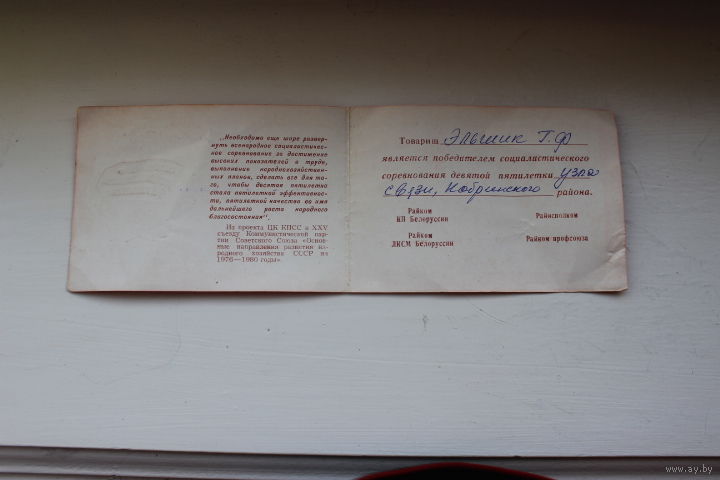 „Необходимо еще шире развер-
нуть всенародное социалистическое
соревнование за достижение
высоких показателей в труде,
выполнение народнохозяйствен-
ных планов, сделать все для то-
го, чтобы десятая пятилетка
стала пятилеткой эффективнос-
ти, пятилеткой качества во имя
дальнейшего роста народного
благосостояния".
Из проекта ЦК КПСС к XXV
съезду Коммунистической пар-
тии Советского Союза «Основ-
ные направления развития на-
родного хозяйства СССР на
1976—1980 годы».
Товарищ Т. Ф
является победителем социалистического
соревнования девятой пятилетки узла
связи, Кобринского района.
Райком
КП Белоруссии
Райисполком
Райком
ЛКСМ Белоруссии
Райком профсоюза
www.ay.by